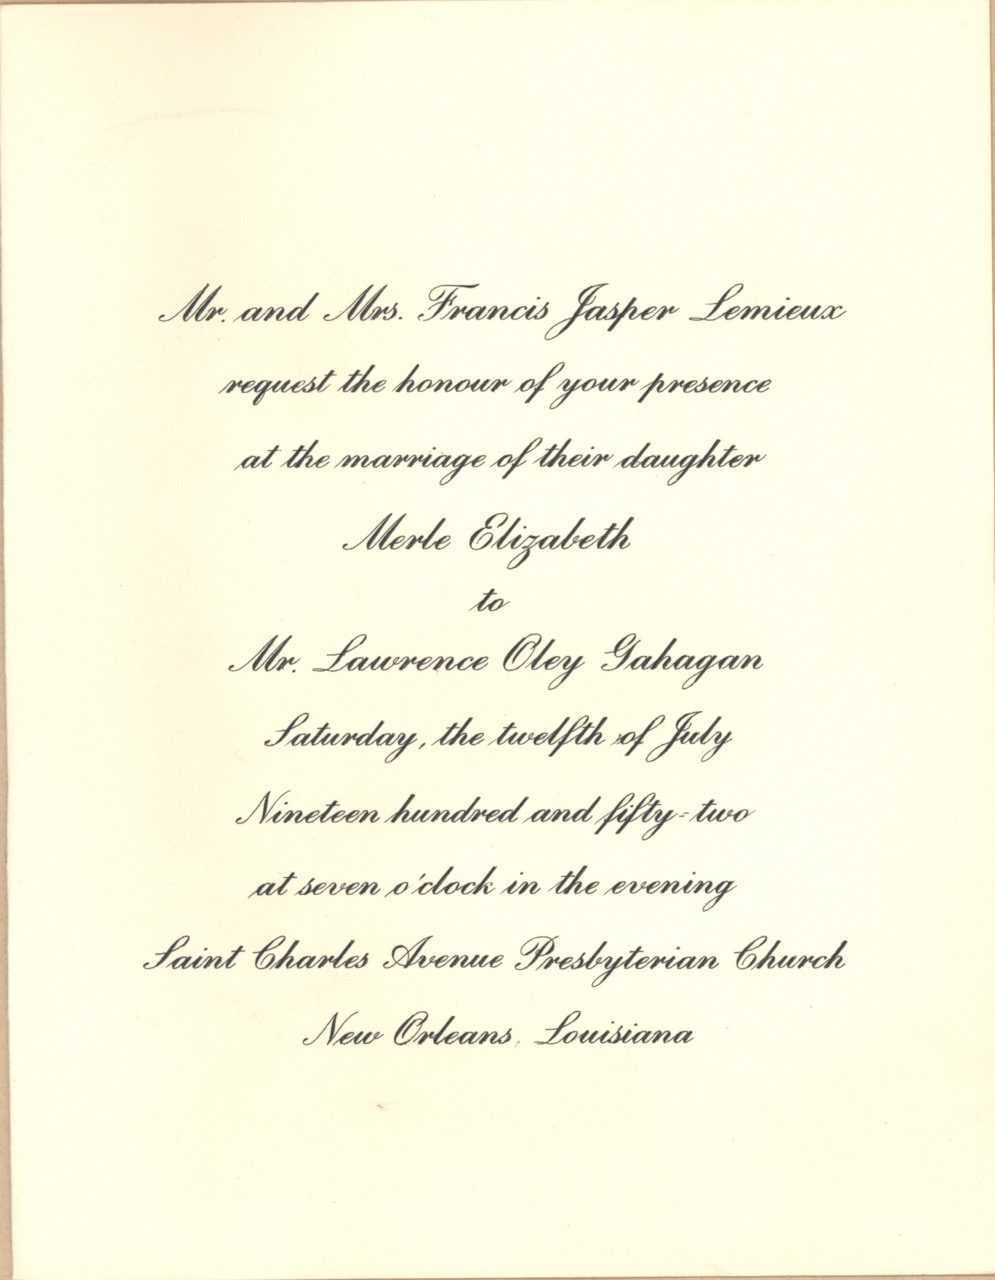 Mr. and Mrs. Francis Jasper Lemieux
request the honour of your presence
at the marriage of their daughter
Merle Elizabeth
to
Mr. Lawrence Oley Gahagan
Saturday, the twelfth of July
Nineteen hundred and fifty-two
at seven o'clock in the evening
Saint Charles Avenue Presbyterian Church
New Orleans, Louisiana